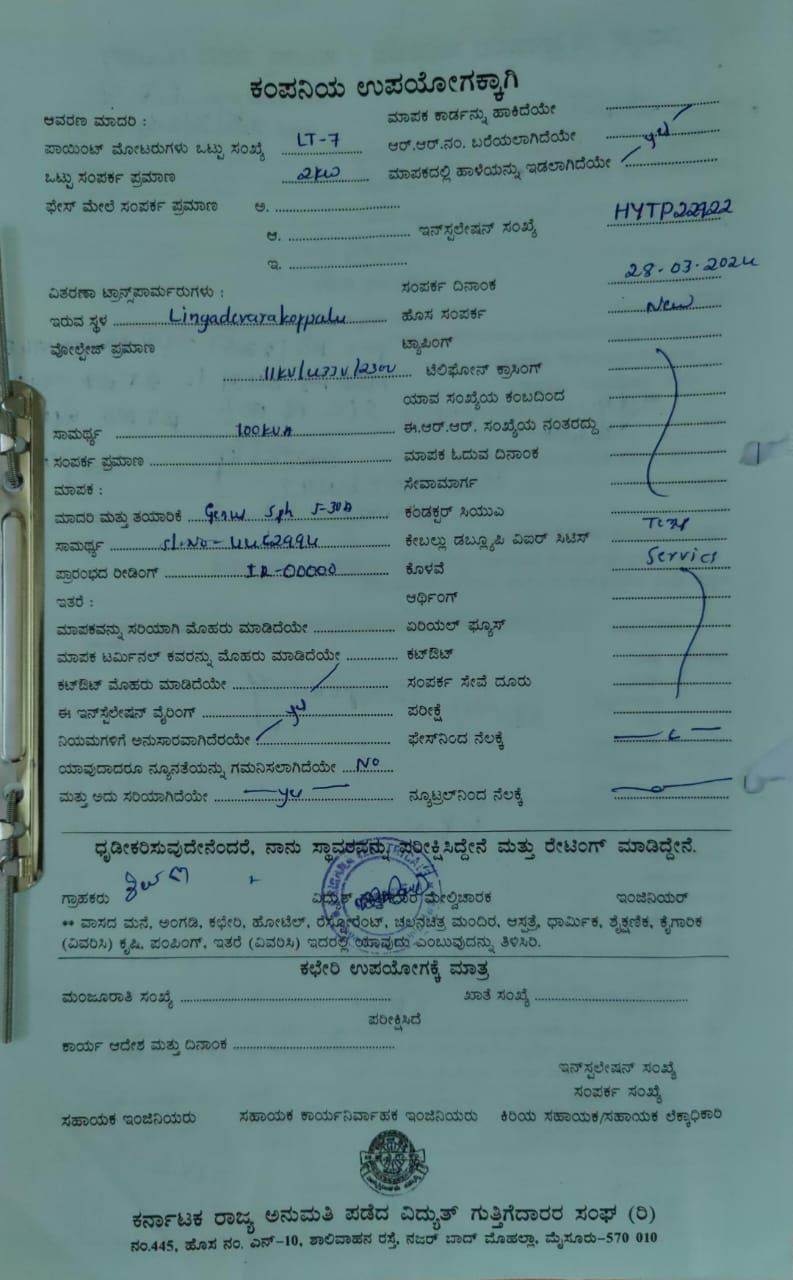 ಕಂಪನಿಯ ಉಪಯೋಗಕ್ಕಾಗಿ
ಆವರಣ ಮಾದರಿ :
ಮಾಪಕ ಕಾರ್ಡನ್ನು ಹಾಕಿದೆಯೇ
ಪಾಯಿಂಟ್ ಮೋಟರುಗಳು ಒಟ್ಟು ಸಂಖ್ಯೆ LT-7
ಆರ್.ಆರ್.ನಂ. ಬರೆಯಲಾಗಿದೆಯೇ
ಒಟ್ಟು ಸಂಪರ್ಕ ಪ್ರಮಾಣ 2KW
ಮಾಪಕದಲ್ಲಿ ಹಾಳೆಯನ್ನು ಇಡಲಾಗಿದೆಯೇ
ಫೇಸ್ ಮೇಲೆ ಸಂಪರ್ಕ ಪ್ರಮಾಣ ಅ.
ಆ.
ಇನ್‌ಸ್ಟಲೇಷನ್ ಸಂಖ್ಯೆ HYTP22922
ಇ.
ಸಂಪರ್ಕ ದಿನಾಂಕ 28-03-2024
ವಿತರಣಾ ಟ್ರಾನ್ಸ್‌ಪಾರ್ಮರುಗಳು :
ಇರುವ ಸ್ಥಳ Lingadevarakoppalu
ಹೊಸ ಸಂಪರ್ಕ New
ವೋಲ್ಟೇಜ್ ಪ್ರಮಾಣ
ಟ್ಯಾಪಿಂಗ್
11KV/433V/230V
ಟೆಲಿಫೋನ್ ಕ್ರಾಸಿಂಗ್
ಯಾವ ಸಂಖ್ಯೆಯ ಕಂಬದಿಂದ
ಸಾಮರ್ಥ್ಯ 100KVA
ಈ.ಆರ್.ಆರ್. ಸಂಖ್ಯೆಯ ನಂತರದ್ದು
ಸಂಪರ್ಕ ಪ್ರಮಾಣ
ಮಾಪಕ ಓದುವ ದಿನಾಂಕ
ಮಾಪಕ :
ಸೇವಾಮಾರ್ಗ
ಮಾದರಿ ಮತ್ತು ತಯಾರಿಕೆ Genus Sph 5-30A
ಕಂಡಕ್ಟರ್ ಸಿಯುಎ
ಸಾಮರ್ಥ್ಯ
ಕೇಬಲ್ಲು ಡಬ್ಲ್ಯೂಪಿ ವಿಐಆರ್ ಸಿಟಿಸ್
ಪ್ರಾರಂಭದ ರೀಡಿಂಗ್ IR-00000
ಕೊಳವೆ Service
ಇತರೆ :
ಆರ್ಥಿಂಗ್
ಮಾಪಕವನ್ನು ಸರಿಯಾಗಿ ಮೊಹರು ಮಾಡಿದೆಯೇ
ಏರಿಯಲ್ ಫ್ಯೂಸ್
ಮಾಪಕ ಟರ್ಮಿನಲ್ ಕವರನ್ನು ಮೊಹರು ಮಾಡಿದೆಯೇ
ಕಟ್‌ಔಟ್
ಕಟ್‌ಔಟ್ ಮೊಹರು ಮಾಡಿದೆಯೇ
ಸಂಪರ್ಕ ಸೇವೆ ದೂರು
ಈ ಇನ್‌ಸ್ಟೆಲೇಷನ್ ವೈರಿಂಗ್ yes
ಪರೀಕ್ಷೆ
ನಿಯಮಗಳಿಗೆ ಅನುಸಾರವಾಗಿದೆರಯೇ
ಫೇಸ್‌ನಿಂದ ನೆಲಕ್ಕೆ
ಯಾವುದಾದರೂ ನ್ಯೂನತೆಯನ್ನು ಗಮನಿಸಲಾಗಿದೆಯೇ No
ಮತ್ತು ಅದು ಸರಿಯಾಗಿದೆಯೇ yes
ನ್ಯೂಟ್ರಲ್‌ನಿಂದ ನೆಲಕ್ಕೆ
ಧೃಡೀಕರಿಸುವುದೇನೆಂದರೆ, ನಾನು ಸ್ಥಾವರವನ್ನು ಪರೀಕ್ಷಿಸಿದ್ದೇನೆ ಮತ್ತು ರೇಟಿಂಗ್ ಮಾಡಿದ್ದೇನೆ.
ಗ್ರಾಹಕರು ವಿದ್ಯುತ್ ಮೇಲ್ವಿಚಾರಕ ಇಂಜಿನಿಯರ್
** ವಾಸದ ಮನೆ, ಅಂಗಡಿ, ಕಛೇರಿ, ಹೋಟೆಲ್, ರೆಸ್ಟೋರೆಂಟ್, ಚಲನಚಿತ್ರ ಮಂದಿರ, ಆಸ್ಪತ್ರೆ, ಧಾರ್ಮಿಕ, ಶೈಕ್ಷಣಿಕ, ಕೈಗಾರಿಕ
(ವಿವರಿಸಿ) ಕೃಷಿ, ಪಂಪಿಂಗ್, ಇತರೆ (ವಿವರಿಸಿ) ಇದರಲ್ಲಿ ಯಾವುದು ಎಂಬುವುದನ್ನು ತಿಳಿಸಿರಿ.
ಕಛೇರಿ ಉಪಯೋಗಕ್ಕೆ ಮಾತ್ರ
ಮಂಜೂರಾತಿ ಸಂಖ್ಯೆ
ಖಾತೆ ಸಂಖ್ಯೆ
ಪರೀಕ್ಷಿಸಿದೆ
ಕಾರ್ಯ ಆದೇಶ ಮತ್ತು ದಿನಾಂಕ
ಇನ್‌ಸ್ಟಲೇಷನ್ ಸಂಖ್ಯೆ
ಸಂಪರ್ಕ ಸಂಖ್ಯೆ
ಸಹಾಯಕ ಇಂಜಿನಿಯರು ಸಹಾಯಕ ಕಾರ್ಯನಿರ್ವಾಹಕ ಇಂಜಿನಿಯರು ಕಿರಿಯ ಸಹಾಯಕ/ಸಹಾಯಕ ಲೆಕ್ಕಾಧಿಕಾರಿ
ಕರ್ನಾಟಕ ರಾಜ್ಯ ಅನುಮತಿ ಪಡೆದ ವಿದ್ಯುತ್ ಗುತ್ತಿಗೆದಾರರ ಸಂಘ (ರಿ)
ನಂ.445, ಹೊಸ ನಂ. ಎನ್-10, ಶಾಲಿವಾಹನ ರಸ್ತೆ, ನಜರ್ ಬಾದ್ ಮೊಹಲ್ಲಾ, ಮೈಸೂರು-570 010